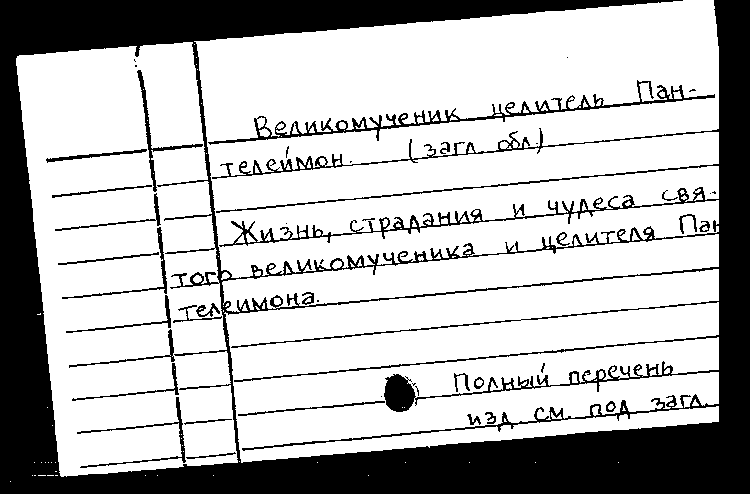 Великомученик целитель Пан-
телеймон. (загл. обл)
Жизнь, страдания и чудеса свя-
того великомученика и целителя Пан
телеимона.
Полный перечень
изд. см. под загл.